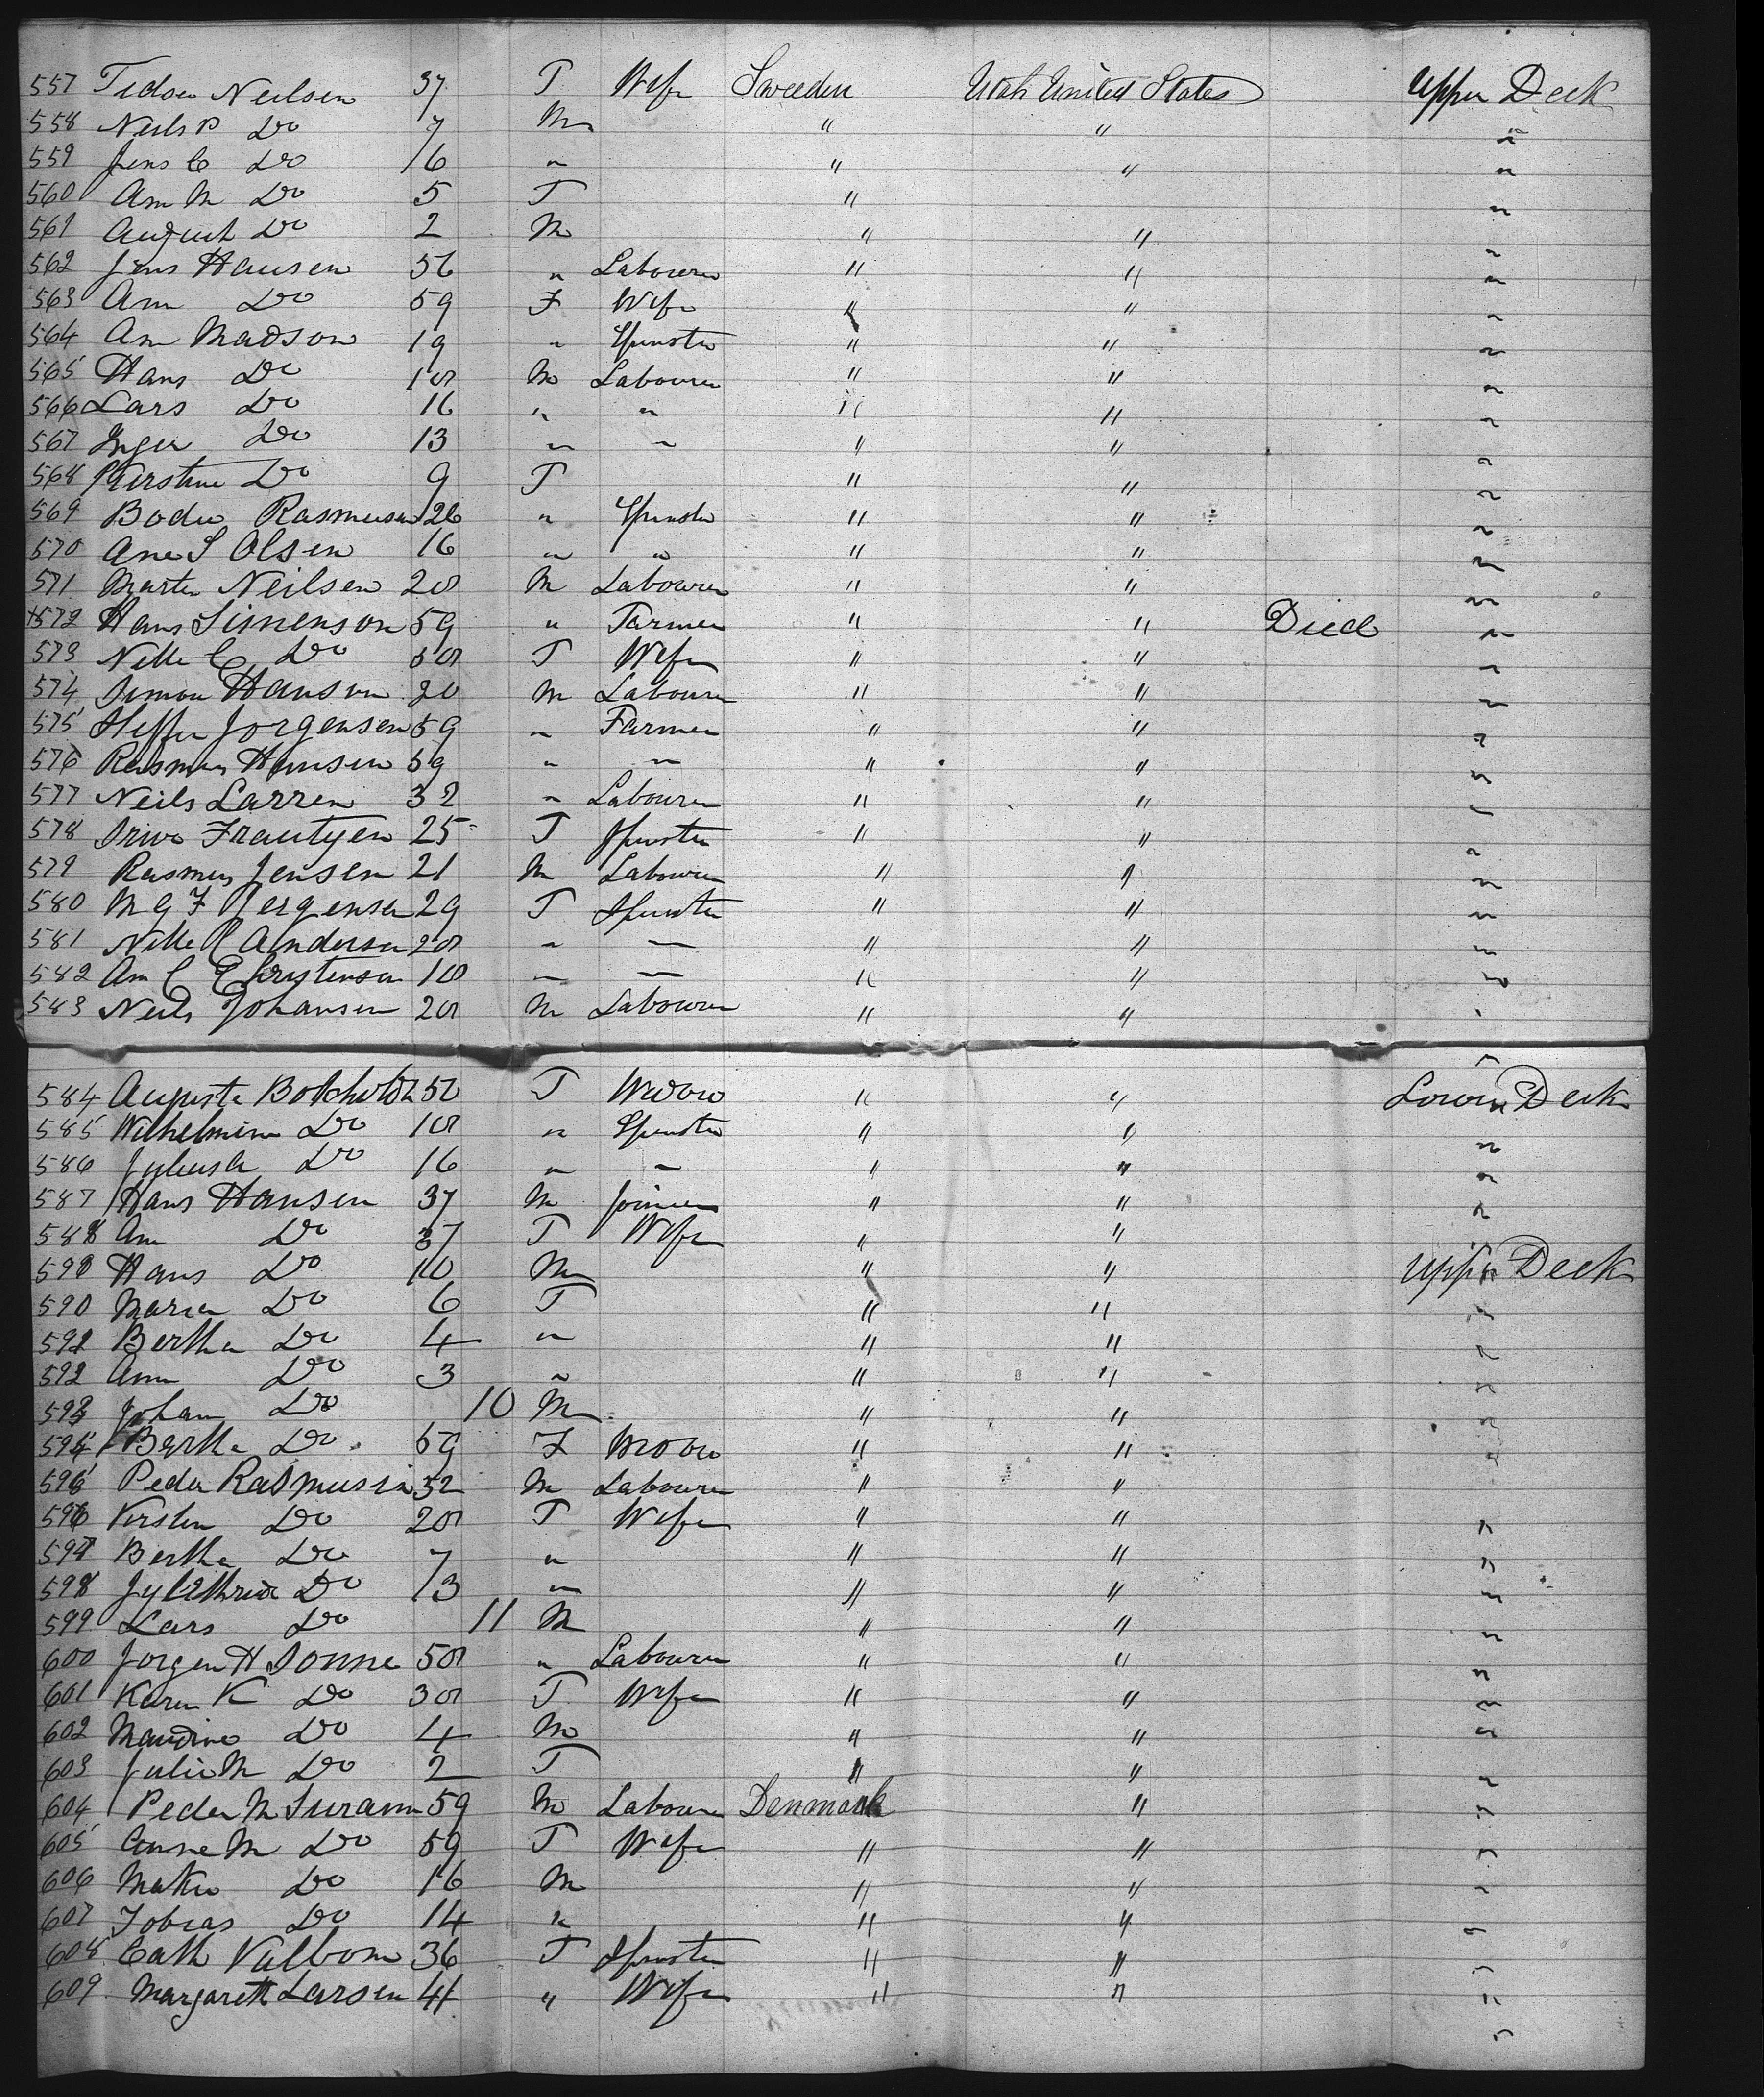 557 Tidsen Neilsen 37 F Wife Sweeden Utah United States Upper Deck
558 Neils P Do 7 M " " "
559 Jens C Do 6 " " " "
560 Ann M Do 5 F " "
561 August Do 2 M " " "
562 Jens Hansen 56 " Labourer " " "
563 Ann Do 59 F Wife " " "
564 Ann Madson 19 " Spinster " " "
565 Hans Do 18 M Labourer " " "
566 Lars Do 16 " " " " "
567 Inger Do 13 " " " " "
568 Kirstine Do 9 F " " "
569 Bodie Rasmusen 26 " Spinster " " "
570 Ane S Olsen 16 " " " " "
571 Marten Neilsen 28 M Labourer " " "
+572 Hans Simenson 59 " Farmer " " Died "
573 Nille C Do 58 F Wife " " "
574 Simon Hanson 20 M Labourer " " "
575 Steffen Jorgensen 59 " Farmer " " "
576 Rasmus Hansen 59 " " " " "
577 Neils Larren 32 " Labourer " " "
578 25 F Spinster " " "
579 Rasmus Jensen 21 M Labourer " " "
580 M G F Jergensen 29 F Spinster " " "
581 Nille K Anderson 28 " " " " "
582 Ann C Christensen 18 " " " " "
583 Neils Johansen 28 M Labourer " " "
584 Auguste 50 F Widow " " Lower Deck
585 Wilhelmine Do 18 " Spinster " " "
586 Do 16 " " " " "
587 Hans Hansen 37 M Joiner " " "
588 Ann Do 37 F Wife " " "
589 Hans Do 10 M " " Upper Deck
590 Maria Do 6 F " " "
591 Bertha Do 4 " " " "
592 Ann Do 3 " " " "
593 Johan Do 10 M " " "
594 Bertha Do 59 F Widow " " "
595 Peder Rasmussin 32 M Labourer " "
596 Kirsten Do 28 F Wife " " "
597 Bertha Do 7 " " " "
598 Do 3 " " " "
599 Lars Do 11 M " " "
600 Jorgen H Sonne 58 " Labourer " " "
601 Karen K Do 38 F Wife " " "
602 Do 4 M " " "
603 Julie M Do 2 F " " "
604 Peder M 59 M Labourer Denmark " "
605 Anne M Do 59 F Wife " " "
606 Do 16 M " " "
607 Tobias Do 14 " " " "
608 Cath Valbom 36 F Spinster " " "
609 Margareth Larsen 41 " Wife " " "